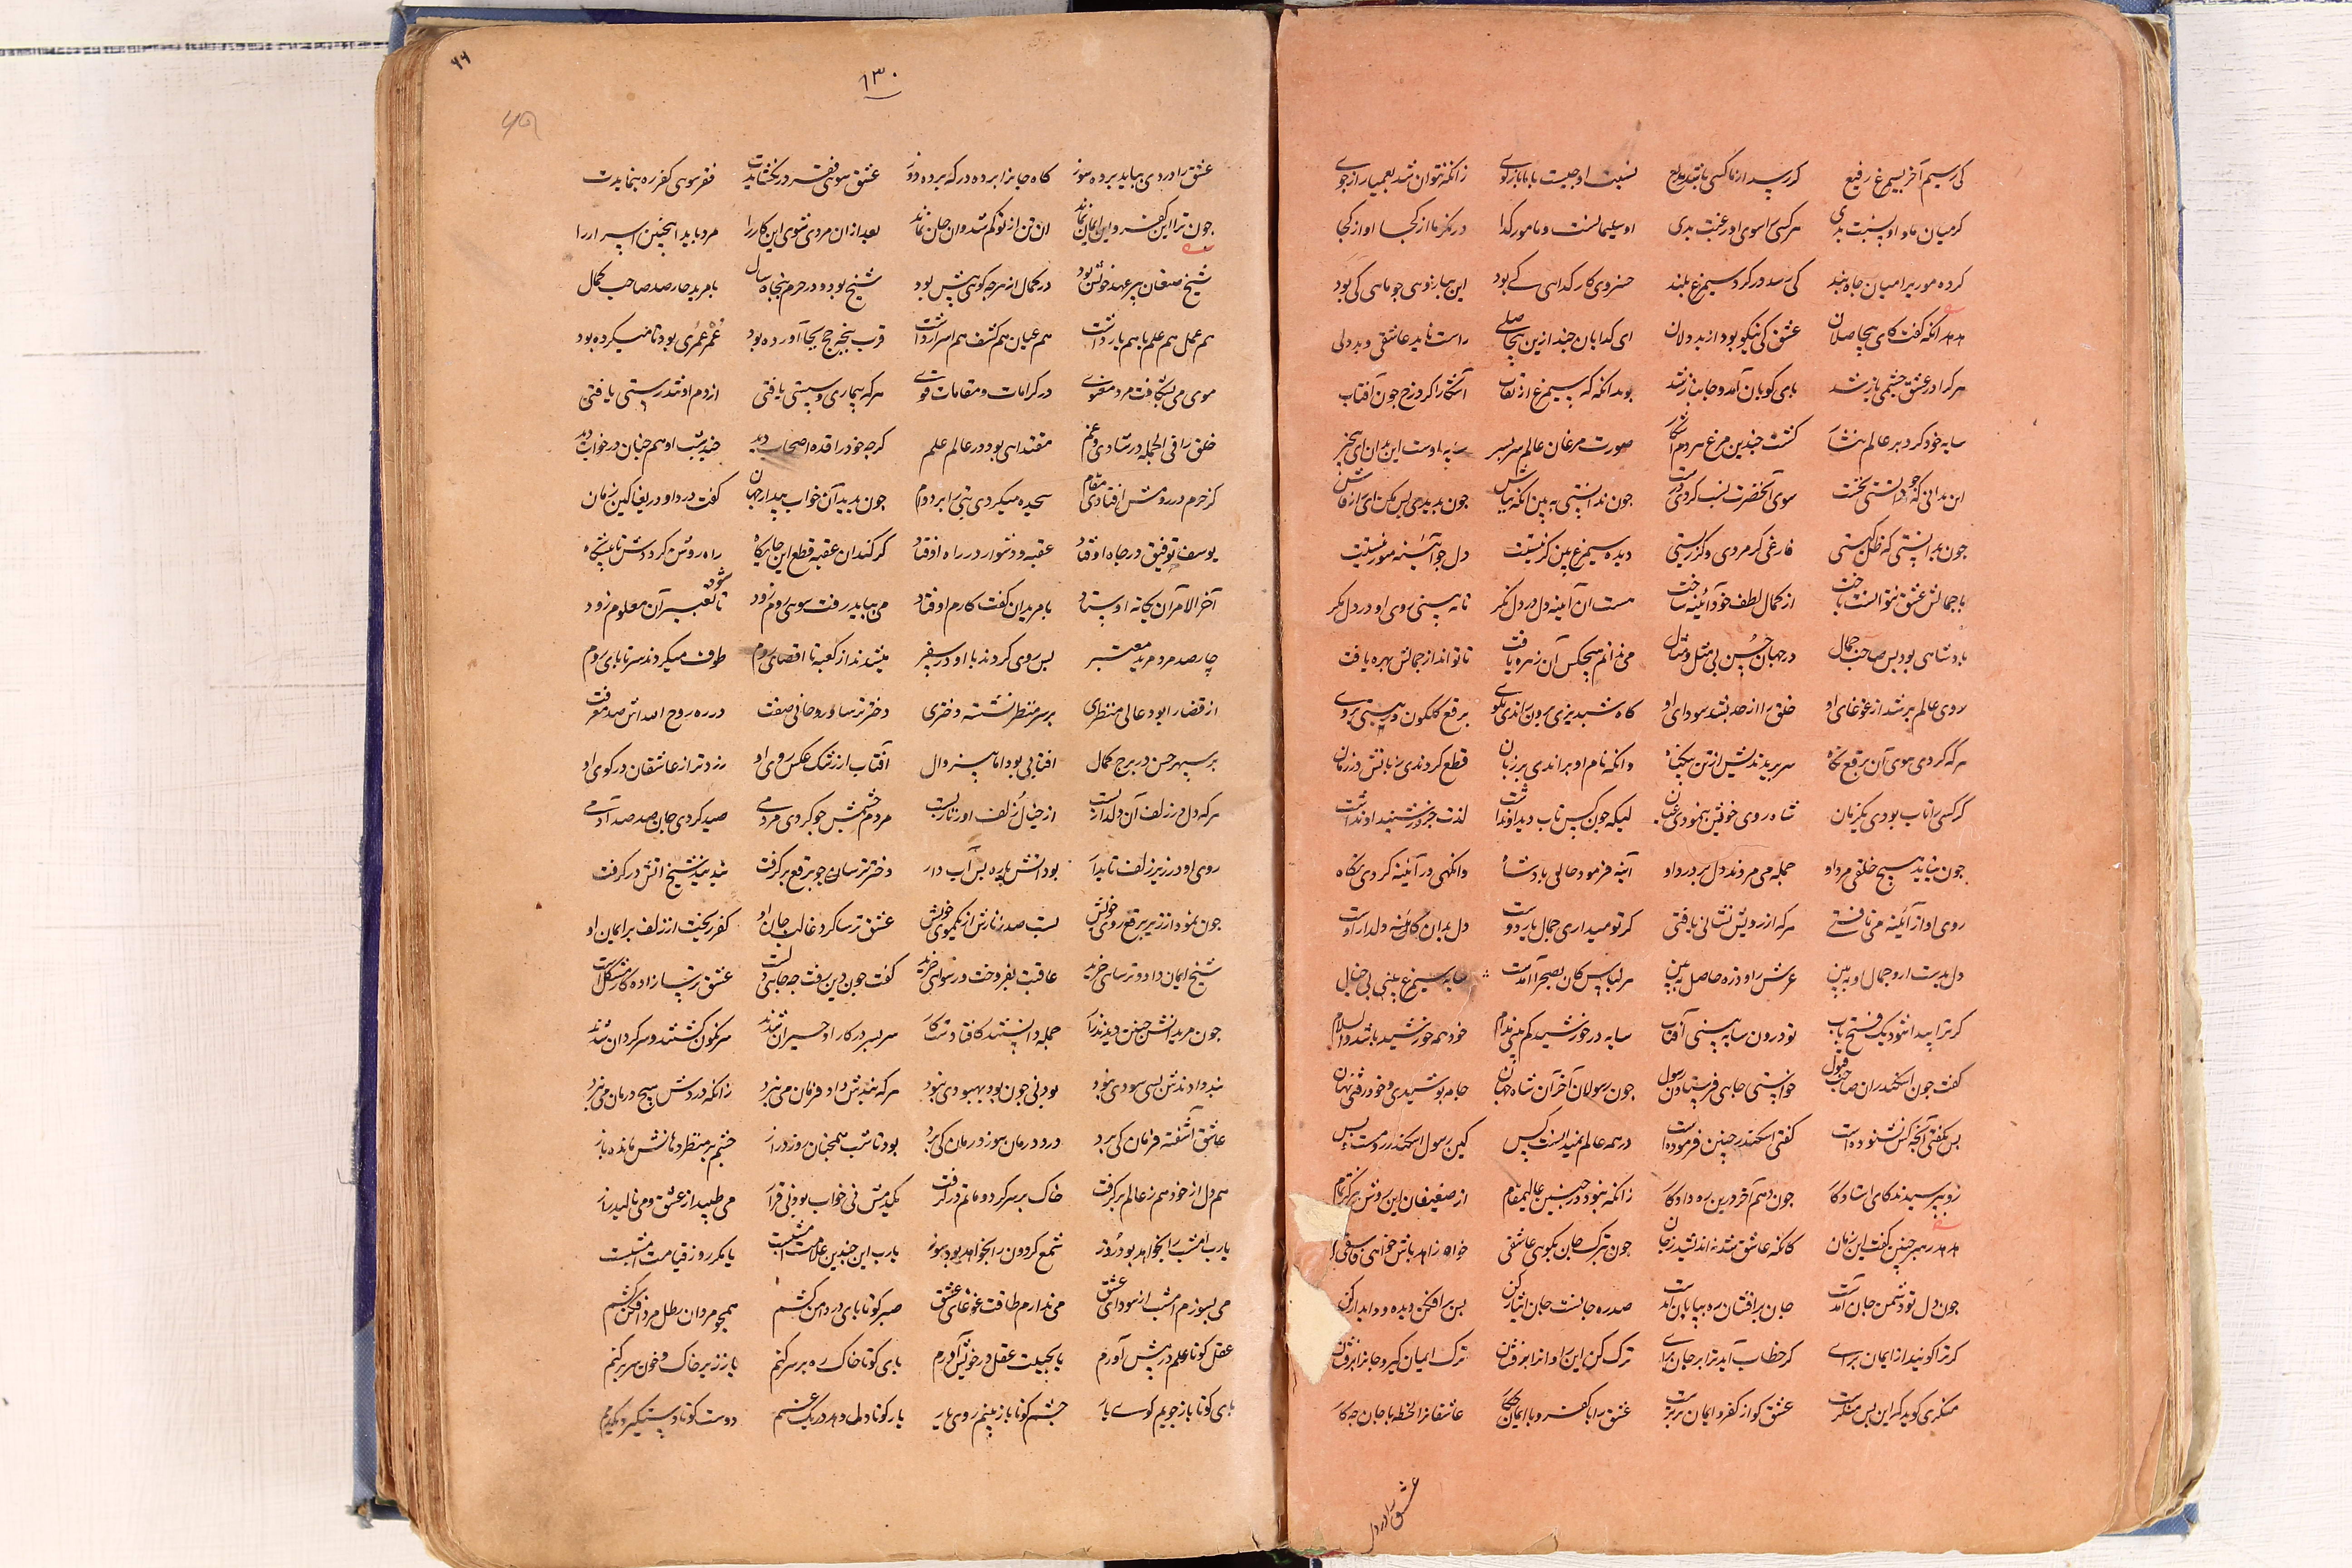 کی رسیم آخر بسیمرغ رفیع گر رسد از ما کسی باشد بدیع نسبت او چیست با ما باز گوی زانکه نتوان شد بعمیا راز جوی
گر میان ما و او نسبت بدی هر کسی را سوی او رغبت بدی او سلیمانست و ما مور گدا در نگر ما از کجا او از کجا
کرده موری را میان چاه بند کی رسد در گرد سیمرغ بلند خسروی کار گدایی کی بود این ببازوی چو مایی کی بود
هدهد آنگه گفت کای بیحاصلان عشق کی نیکو بود از بددلان ای گدایان چند ازین بیحاصلی راست ناید عاشقی و بددلی
هر کرا در عشق چشمی باز شد پای کوبان آمد و جانباز شد بدانکه که سیمرغ از نقاب آشکارا کرد رخ چون آفتاب
سایه خود کرد بر عالم نثار گشت چندین مرغ هر دم آشکار صورت مرغان عالم سر بسر سایه اوست این بدان ای بیخبر
این بدانی که چو دانستی نخست سوی آن حضرت نسب کردی درست چون ندانستی به بین آنکه بباش چون بدیدی پس مکن این راز فاش
چون بدانستی که ظل کیستی فارغی گر مردی و گر زیستی دیده سیمرغ بین گر نیستت دل چو آئینه منور نیستت
با جمالش عشق نتوانست باخت از کمال لطف خود آئینه ساخت هست آن آئینه دل در دل نگر تا به بینی روی او در دل مگر
پادشاهی بود بس صاحب جمال در جهان حسن بی مثل و مثال می ندانم هیچکس آن زهره یافت تا تواند از جمالش بهره یافت
روی عالم پر شد از غوغای او خلق را از حد بشد سودای او گاه شبدیزی برون راندی بکوی برقع گلگون فروهشتی بروی
هر که کردی سوی آن برقع نگاه سر بریدندیش از تن بیگناه وانکه نام او براندی بر زبان قطع کردندی زبانش در زمان
گر کسی را تاب بودی یکزمان شاه روی خویش بنمودی عیان لیک چون کس تاب دید او نداشت لذت جز در شنید او نداشت
چون نیامد هیچ خلقی مرد او جمله می مردند دل پر درد او آینه فرمود حالی پادشاه وانگهی در آئینه کردی نگاه
روی او از آئینه می تافتی هر که از رویش نشانی یافتی گر تو میداری جمال یار دوست دل بدان کائینه دیدار اوست
دل بدست آر و جمال او ببین عرش را و ذره حاصل ببین هر لباسی کان بصحرا آمدست سایه سیمرغ بینی بی خیال
گر ترا پیدا شود یک فتح باب تو درون سایه بینی آفتاب سایه در خورشید گم بینی مدام خود همه خورشید باشد والسلام
گفت چون اسکندر آن صاحب قبول خواستی جایی فرستادن رسول چون رسولان آخر آن شاه جهان جامه پوشیدی و خود رفتی نهان
پس بگفتی آنچه کس نشنوده است گفتی اسکندر چنین فرموده است در همه عالم نمیدانست کس کین رسول اسکندرست و بس
زو بپرسیدند کای استاد کار چون دهم آخر درین ره داد کار زانکه نبود در چنین عالی مقام از ضعیفان این روش هرگز تمام
هدهد رهبر چنین گفت این زمان کانکه عاشق شد نه اندیشد ز جان چون بترک جان بگوی عاشقی خواه زاهد باش خواهی فاسقی
چون دل تو دشمن جان آمدست جان برافشان ره بپایان آمدست صد ره جانست جان ایثار کن پس برافکن دیده و دیدار کن
گر ترا گویند از ایمان برای گر خطاب آید ترا بر جان برای ترک کن این را و آنرا برفشان ترک ایمان گیر و جانرا برفشان
منکری گوید که این بس منکرست عشق کو از کفر و ایمان برترست عشق را با کفر و با ایمان چه کار عاشقانرا لحظه با جان چه کار
عشق را درد دل
۱۳۰
۶۶
عشق را دردی بباید پرده سوز گاه جانرا پرده در گه پرده دوز عشق سوی فقر در بگشایدت فقر سوی کفر ره بنمایدت
چون ترا این کفر و این ایمان نماند این تن از تو گم شد و آن جان نماند بعد از آن مردی شوی این کار را مرد باید اینچنین اسرار را
شیخ صنعان پیر عهد خویش بود در کمال از هر چه گویی پیش بود شیخ بود و در حرم پنجاه سال با مرید چارصد صاحب کمال
هم عمل هم علم با هم یار داشت هم عیان هم کشف هم اسرار داشت قرب پنجه حج بجا آورده بود عمره عمری بود تا میکرده بود
موی می بشکافت مرد معنوی در کرامات و مقامات قوی هر که بیماری و سستی یافتی از دم او تندرستی یافتی
خلق را فی الجمله در شادی و غم مقتدایی بود در عالم علم گرچه خود را قدوه اصحاب دید چند شب او هم چنان در خواب دید
کز حرم در رومش افتادی مقام سجده میکردی بتی را بر دوام چون بدید آن خواب بیدار جهان گفت دردا و دریغا کین زمان
یوسف توفیق در چاه اوفتاد عقبه دشوار در راه اوفتاد گر کند آن عقبه قطع این جایگاه راه روشن گرددش تا پیشگاه
آخر الامر آن یگانه اوستاد با مریدان گفت کارم اوفتاد می بباید رفت سوی روم زود تا شود تعبیر آن معلوم زود
چارصد مرد مرید معتبر پس روی کردند با او در سفر میشدند از کعبه تا اقصای روم طوف میکردند سر تا پای روم
از قضا را بود عالی منظری بر سر منظر نشسته دختری دختر ترسا و روحانی صفت در ره روح اللهش صد معرفت
بر سپهر حسن در برج کمال آفتابی بود اما بی زوال آفتاب از رشک عکس روی او زردتر از عاشقان در کوی او
هر که دل در زلف آن دلدار بست از خیال زلف او زنار بست مردم چشمش چو کردی مردمی صید کردی جان صد صد آدمی
روی او در زیر زلف تابدار بود آتش پاره بس آب دار دختر ترسا چو برقع برگرفت بند بند شیخ آتش درگرفت
چون نمود از زیر برقع روی خویش بست صد زنارش از یکموی خویش عشق ترسا کرد غالب جان او کفر ریخت از زلف بر ایمان او
شیخ ایمان داد و ترسائی خرید عافیت بفروخت و رسوائی خرید گفت چون دین رفت چه جای دلست عشق ترسازاده کار مشکل است
چون مریدانش چنین دیدند زار جمله دانستند کافتادست کار سر بسر در کار او حیران شدند سرنگون گشتند و سرگردان شدند
پند دادندش بسی سودی نبود بودنی چون بود بهبودی نبود هر که پندش داد فرمان می نبرد زانکه دردش هیچ درمان می نبرد
عاشق آشفته فرمان کی برد درد درمان سوز درمان کی برد بود تا شب همچنان روز دراز چشم بر منظر دهانش مانده باز
هم دل از خود هم ز عالم برگرفت خاک بر سر کرد و ماتم درگرفت یکدمش نی خواب بود نی قرار می طپید از عشق و می نالید زار
یارب امشب را نخواهد بود روز شمع گردون را نخواهد بود سوز یارب این چندین علامت امشبست یا مگر روز قیامت امشبست
می بسوزم امشب از سودای عشق می ندارم طاقت غوغای عشق صبر کو تا پای در دامن کشم همچو مردان رطل مرد افکن کشم
عقل کو تا علم در پیش آورم یا بحیلت عقل در خویش آورم پای کو تا خاک ره بر سر کنم یا ز زیر خاک و خون سر بر کنم
پای کو تا باز جویم کوی یار چشم کو تا باز بینم روی یار یار کو تا دل دهد در یک غمم دوست کو تا دستگیرد یکدمم